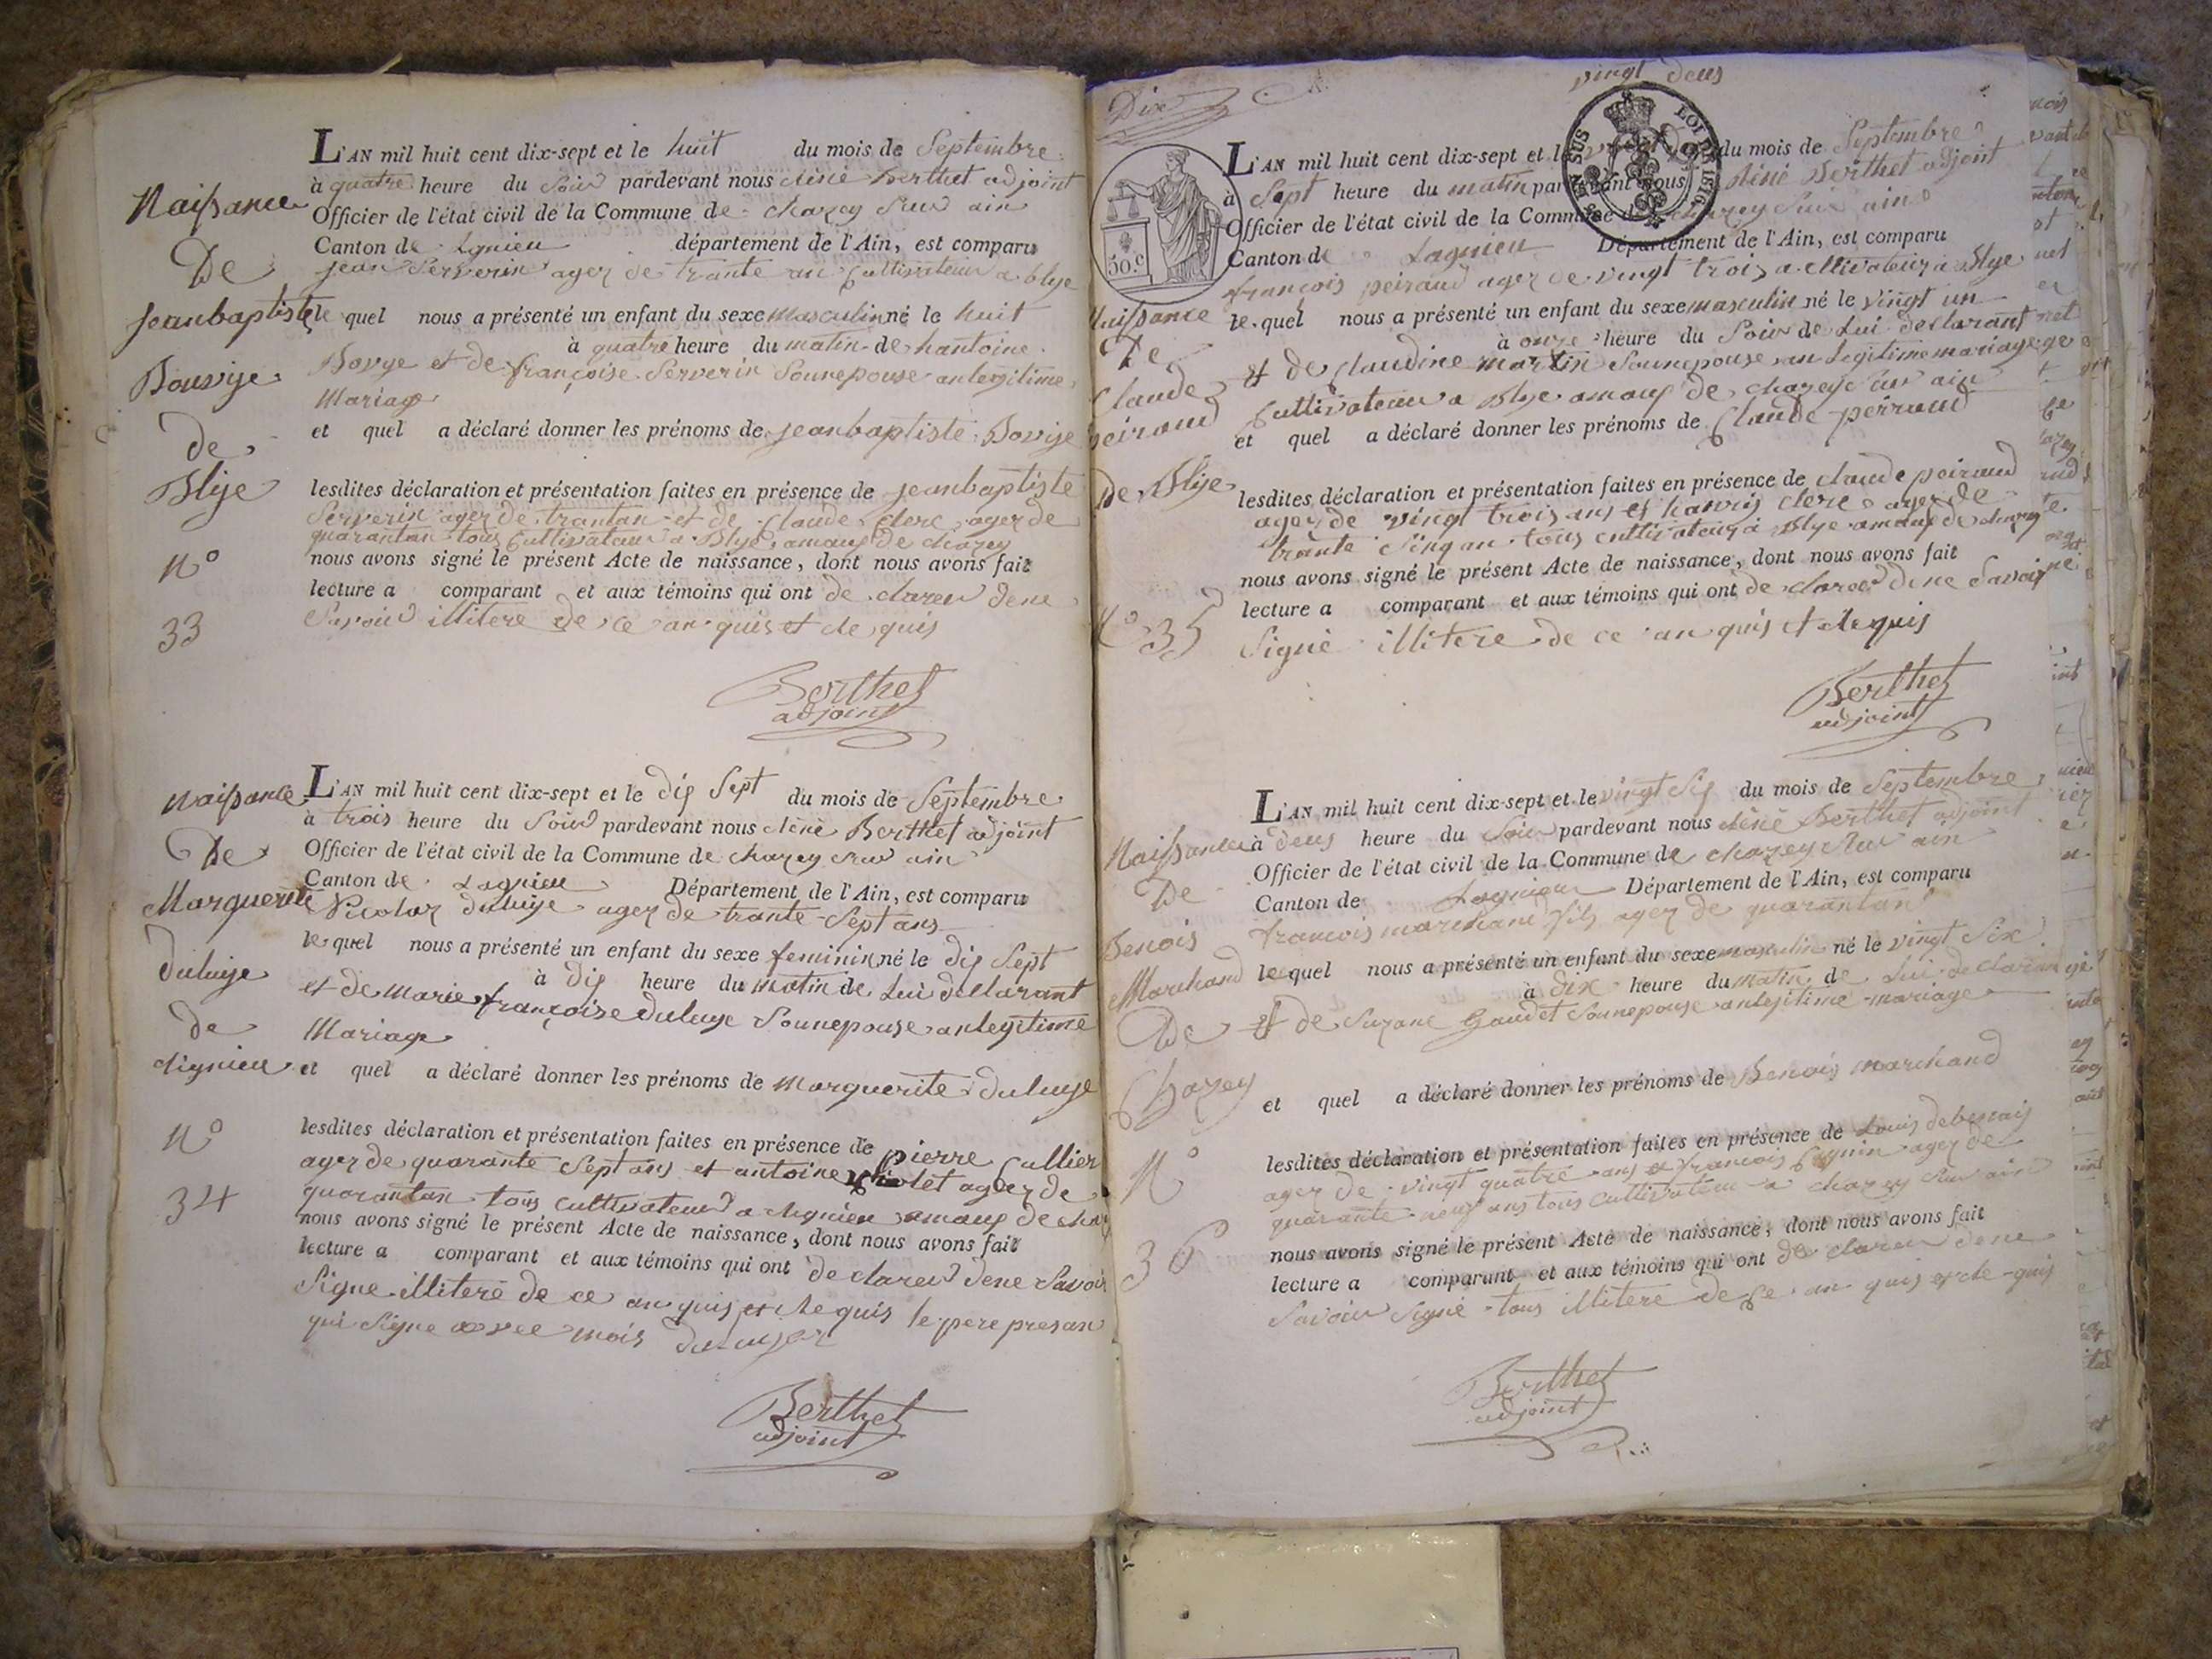 Naissance
De
Jeanbaptiste
Bouvije
de
Blye
N°
33
L'AN mil huit cent dix-sept et le huit du mois de Septembre
à quatre heure du Soir pardevant nous Berthet adjoint
Officier de l'état civil de la Commune de chazey Sur ain
Canton de Lgnieu département de l'Ain, est comparu
jean Serverin agez de trante an Cultivateur a blye
le quel nous a présenté un enfant du sexe masculin né le huit
à quatre heure du matin de hantoine
Bovye et de françoise Serverin Sounepouse antegitime
Mariage
et quel a déclaré donner les prénoms de jeanbaptiste Bovije
lesdites déclaration et présentation faites en présence de jeanbaptiste
Serverin agez de trantan et de Claude Clerc agez de
quarantan tous Cultivateur a Blye amauf de chazey
nous avons signé le présent Acte de naissance, dont nous avons fait
lecture a comparant et aux témoins qui ont de clarer dene
Savoir illitere de ce an quis et de quis
Berthet
adjoint
Naissance
De
Marguerite
duluije
de
N°
34
L'AN mil huit cent dix-sept et le dis Sept du mois de Septembre
à trois heure du Soir pardevant nous Berthet adjoint
Officier de l'état civil de la Commune de chazey Sur ain
Canton de Lagnieu Département de l'Ain, est comparu
Nicolas duluije agez de trante Sept ans
le quel nous a présenté un enfant du sexe feminin né le dis Sept
à dis heure du matin de Lui dellarant
et de marie françoise duluije Sounepouse antegitime
Mariage
et quel a déclaré donner les prénoms de marguerite duluije
lesdites déclaration et présentation faites en présence de pierre Cullier
agez de quarante Sept ans et antoine agez de
quarantan tous Cultivateur a amauf de chaz
nous avons signé le présent Acte de naissance, dont nous avons fait
lecture a comparant et aux témoins qui ont de clarer dene Savoir
Signe illitere de ce an quis et de quis le pere presan
qui Signe avec mois
Berthet
adjoint
Dix
vingt deus
EN SUS LOI DE 1816
50.c
Naissance
De
Claude
peiraud
De Blye
N° 35
L'AN mil huit cent dix-sept et le du mois de Septembre
à Sept heure du matin pardevant nous Berthet adjoint
Officier de l'état civil de la Commune de chazey Sur ain
Canton de Lagnieu Département de l'Ain, est comparu
françois peiraud agez de vingt trois a Cultivateur a Blye
le quel nous a présenté un enfant du sexe masculin né le vingt un
à onze heure du Soir de Lui declarant
et de Claudine martin Sounepouse an Legitime mariage
Cultivateur a Blye amauf de chazey Sur ain
et quel a déclaré donner les prénoms de Claude peiraud
lesdites déclaration et présentation faites en présence de claude peiraud
agez de vingt trois ans et clerc agez de
trante Sinq an tous cultivateur a Blye amauf de chazey
nous avons signé le présent Acte de naissance, dont nous avons fait
lecture a comparant et aux témoins qui ont de clarer de ne Savoir
Signé illitere de ce an quis et de quis
Berthet
adjoint
Naissance
De
Benois
Marchand
De
Chazey
N°
36
L'AN mil huit cent dix-sept et le vingt Sis du mois de Septembre
à deus heure du Soir pardevant nous Berthet adjoint
Officier de l'état civil de la Commune de chazey Sur ain
Canton de Lagnieu Département de l'Ain, est comparu
francois marchand fils agez de quarantan
le quel nous a présenté un enfant du sexe masculin né le vingt Six
à dix heure du matin de Lui declarant
et de Suzane Gaudet Sounepouse antegitime mariage
et quel a déclaré donner les prénoms de Benois marchand
lesdites déclaration et présentation faites en présence de Louis
agez de vingt quatre ans et francois agez de
quarante neuf ans tous cultivateur a chazey Sur ain
nous avons signé le présent Acte de naissance, dont nous avons fait
lecture a comparant et aux témoins qui ont de clarer dene
Savoir Signé tous illitere de ce an quis et de quis
Berthet
adjoint